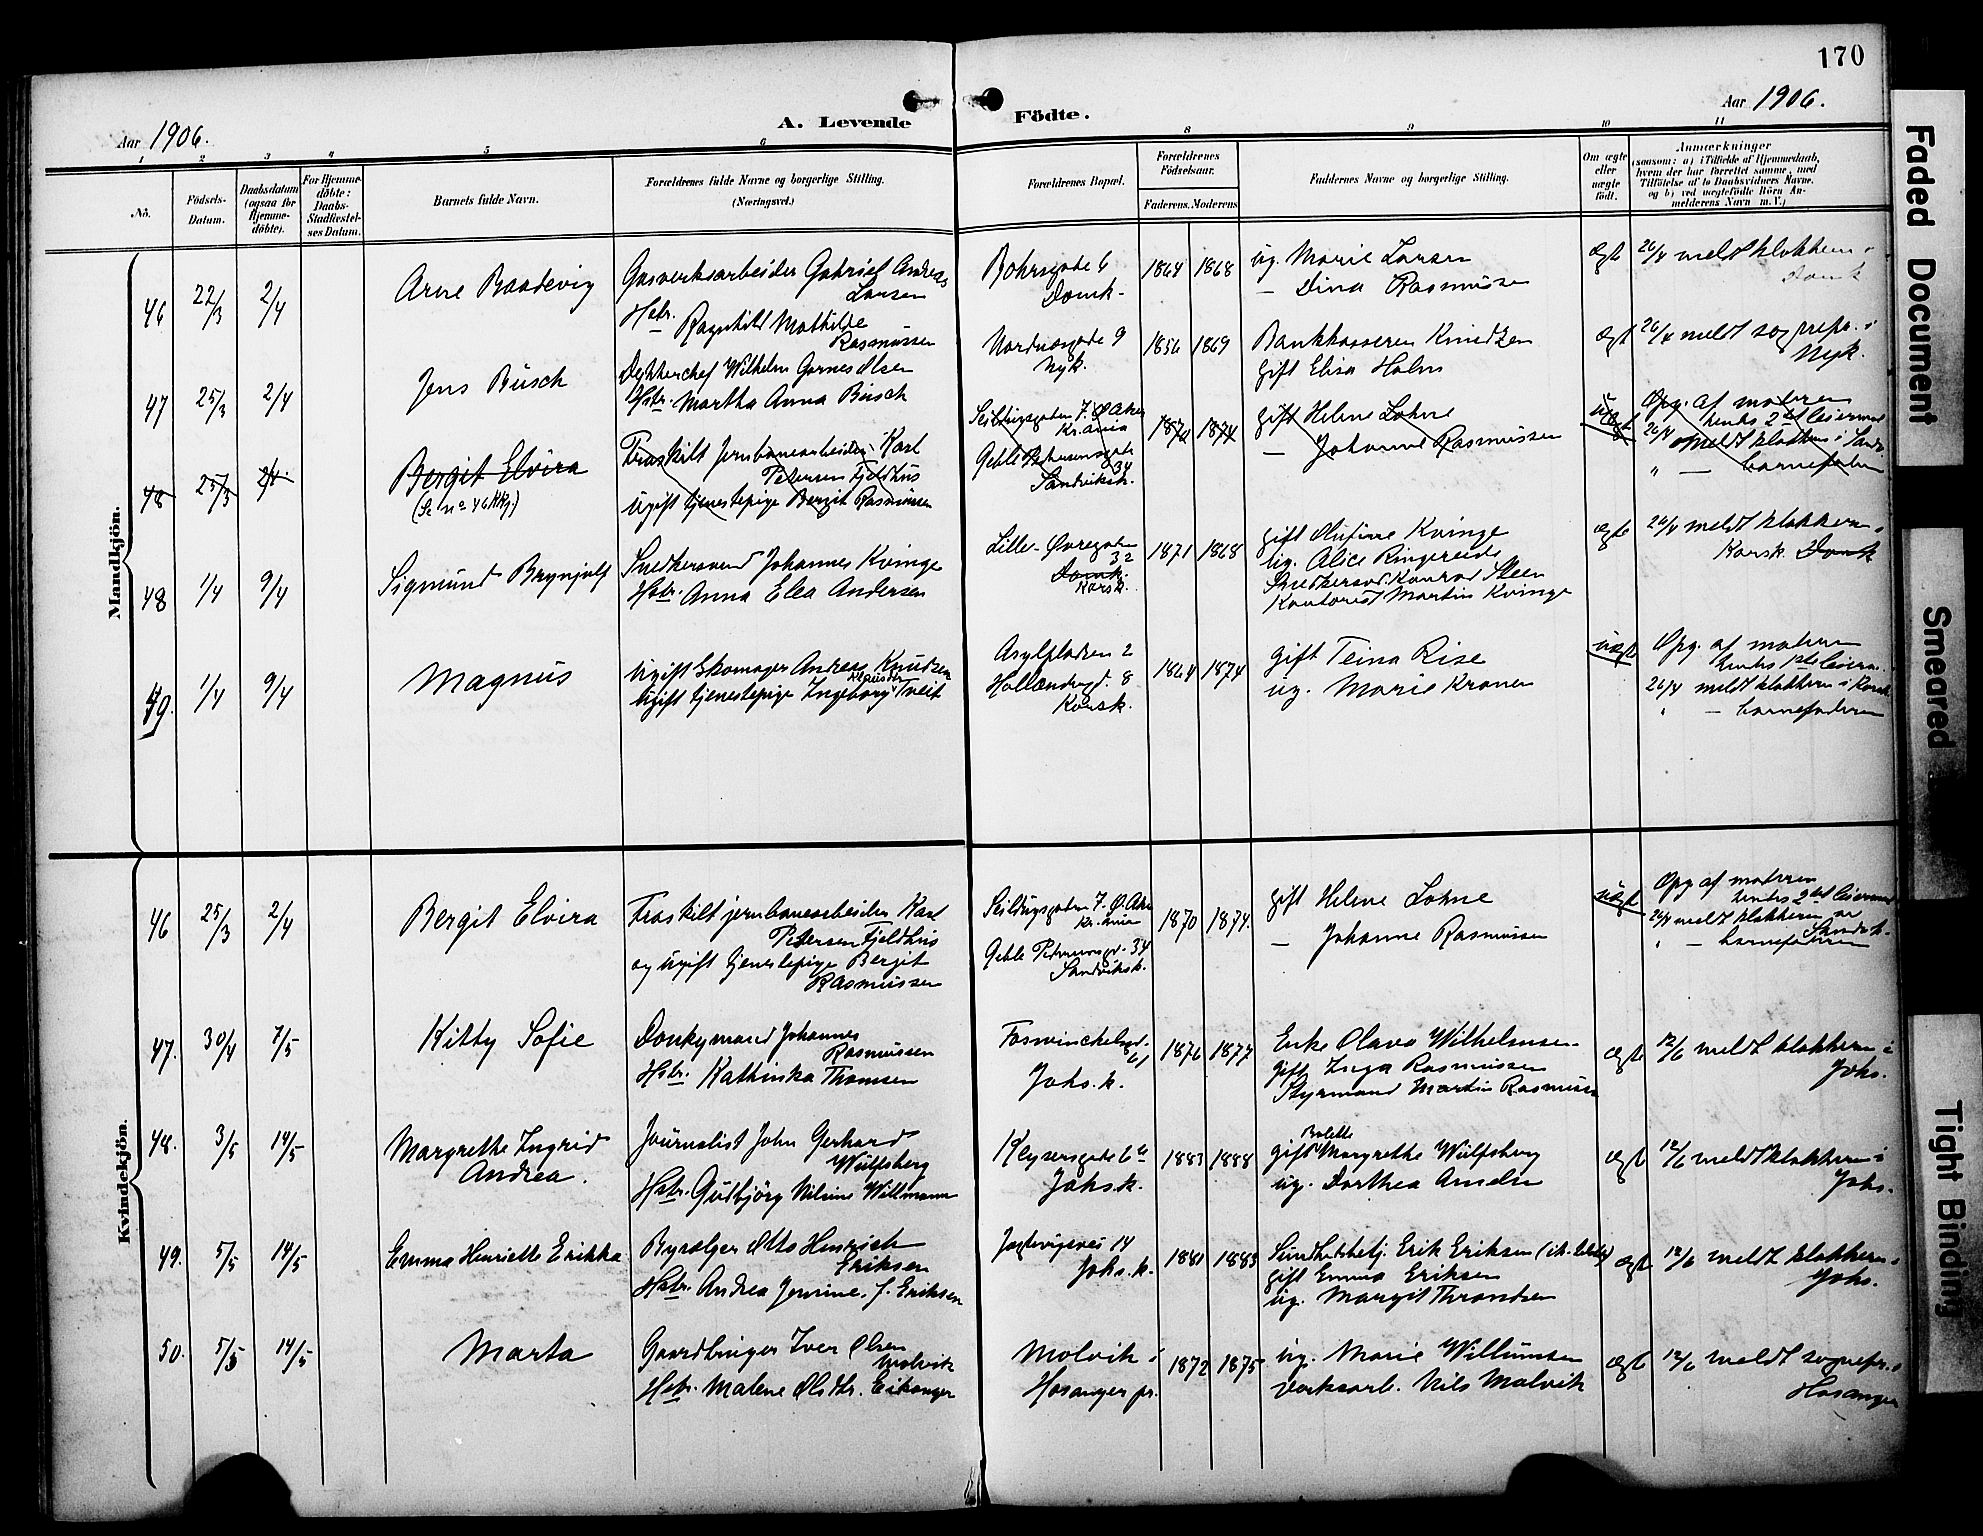 170
Aar 1906.
A. Levende Födte.
Aar 1906.
1 2 3 4 5 6 8 9 10 11
No.
Födsels-Datum.
Daabsdatum (ogsaa for Hjemme-döbte).
For Hjemme-döbte: Daabs-Stadfæstel-ses Datum.
Barnets fulde Navn.
Forældrenes fulde Navne og borgerlige Stilling.
(Næringsvei.)
Forældrenes Bopæl.
Forældrenes Födselsaar.
Faderens. Moderens
Faddernes Navne og borgerlige Stilling.
Om ægte eller uægte födt.
Anmærkninger
(saasom: a) i Tilfælde af Hjemmedaab,
hvem der har forrettet samme, med
Tilföielse af to Daabsvidners Navne.
og b) ved uægtefödte Börn An-
melderens Navn m. V.)
Mandkjön.
46 22/3 2/4 Arne Baadevig
Gasverksarbeider Gabriel Andreas
Larsen
Hstr. Ragnhild Mathilde
Rasmussen
Bohrsgade 6
Domk.
1864 1868
ug. Marie Larsen
— Dina Rasmussen
ægte
26/4 meldt klokkeren i
Domk
47 25/3 2/4 Jens Busch
Dykkerchef Wilhelm Garnes Olsen
Hstr. Martha Anna Busch
Nordnæsgade 9
Nyk.
1856 1869
Bankkasserer Knudtzen
gift Elisa Holm
ægt
26/4 meldt sognepr. i
Nyk.
48 25/3 2/4 Bergit Elvira
(Se no 46 Kkj.)
Fraskilt jernbanearbeider Karl
Petersen Fjeldhus
Ugift tjenestepige Bergit Rasmussen
Seildugsgaden 7. Ø. Aker
Kr.ania
Geble Pedersensgade
34
Sandviksk.
1870 1874
gift Helene Lohne
— Johanne Rasmussen
uægt
Opg. af moderen
hendes 2det leiermaal
26/4 meldt klokkeren i Sandv.
" — barnefaderen
48 1/4 9/4 Sigmund Brynjulf
Snedkersvend Johannes Kvinge
Hstr. Anna Elea Andersen
Lille-Øvregaden
32
Domk.
Korsk.
1871 1868
gift Rufine Kvinge
ug. Alice Ringereide
Snedkersvd Konrad Steen
Kontorist Martin Kvinge
ægte
26/4 meldt klokkeren i
Korsk. Domk
49. 1/4 9/4 Magnus
Ugift Skomager Andreas Knudsen
Ugift tjenestepige Ingeborg Tveit
Asylpladsen 2
Hollændergd. 8
Korsk.
1864 1874
gift Teina Rise
ug. Marie Kroner
uægt
Opg. af moderen
hendes 1ste leierm.
26/4 meldt klokkeren i Korsk
" — barnefaderen
Kvindekjön.
46 25/3 2/4 Bergit Elvira
Fraskilt jernbanearbeider Karl
Petersen Fjeldhus
og ugift tjenestepige Bergit
Rasmussen
Seildugsgaden 7. Ø. Aker
Kr.ania
Geble Pedersensgd. 34
Sandviksk.
1870 1874.
gift Helene Lohne
— Johanne Rasmussen
uægte
Opg. af moderen
hendes 2det leiermaal
26/4 meldt klokkeren
Sandvk.
" — barnefaderen
47. 30/4 7/5 Kitty Sofie
Donkymand Johannes
Rasmussen
Hstr. Kathinka Thomsen
Fosswinckelsgd.
61
Johs. k.
1876 1877
Enke Olava Wilhelmsen
gift Inga Rasmussen
Styrmand Martin Rasmussen
ægte
12/6 meldt klokkeren i
Johs.
48. 3/5 14/5 Margrethe Ingrid
Andrea.
Journalist John Gerhard
Wulfsberg
Hstr. Gudbjörg Nilsine Willmann
Keysersgade 6b
Johs. k.
1883 1888
Bolette
gift Margrethe Wulfsberg
ug. Dorthea Ameln
ægte
12/6 meldt klokkeren i
Johs.
49. 5/5 14/5 Emma Henriette Erikka
Bysælger Otto Henrich
Eriksen
Hstr. Andrea Jensine, f. Eriksen
Jægtevigsvei 14
Johs. k.
1881 1883
Sundhedsbetj. Erik Eriksen
gift Emma Eriksen
ug. Margit Throndsen
ægte
12/6 meldt klokkeren i
Johs.
50. 5/5 14/5 Marta
Gaardbruger Iver Olsen
Molvik
Hstr. Malene Olsdtr. Eikanger
Molvik i
Hosanger pr.
1872 1875
ug. Marie Willumsen
Verksarb. Nils Molvik
ægte
12/6 meldt sognepr. i
Hosanger
Faded Document
Smeared
Tight Binding